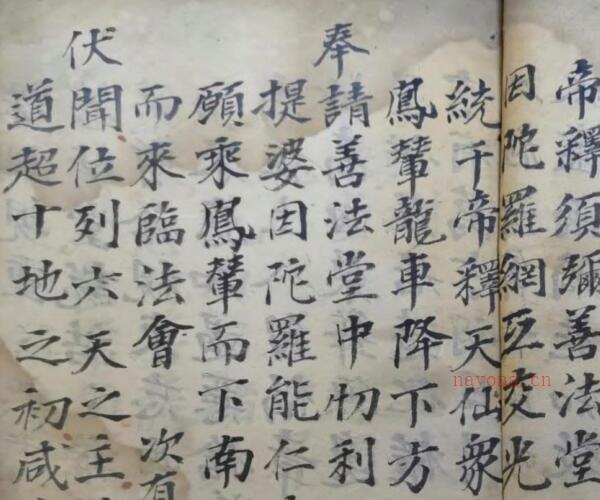 帝釋須彌善法堂
因陀羅網互交光
統千帝釋天仙衆
鳳輦龍車降下方
奉請善法堂中忉利
提婆因陀羅能仁
願乘鳳輦而下南
而來臨法會 次有
伏聞位列六天之主
道超十地之初咸
nayona.cn